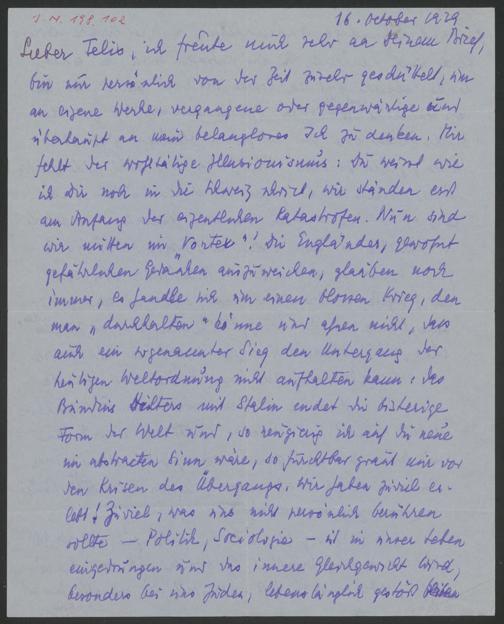 I.N. 198.102
16. October 1939
Lieber Felix, ich freute mich sehr an Deinem Brief,
bin nur persönlich von der Zeit zusehr geschüttelt, um
an eigene Werke, vergangene oder gegenwärtige und
überhaupt an mein belangloses Ich zu denken. Mir
fehlt der wohltätige Illusionismus: Du weisst wie
ich Dir noch in die Schweiz schrieb, wir ständen erst
am Anfang der eigentlichen Katastrofen. Nun sind
wir mitten im "Vortex"! Die Engländer, gewohnt
gefährlichen Gedanken auszuweichen, glauben noch
immer, es handle sich um einen blossen Krieg, den
man „durchhalten" könne und ahnen nicht, dass
auch ein sogenannter Sieg den Untergang der
heutigen Weltordnung nicht aufhalten kann: das
Bündnis Hitlers mit Stalin endet die bisherige
Form der Welt und, so neugierig ich auf die neue
im abstracten Sinn wäre, so furchtbar graut mir vor
den Krisen des Übergangs. Wir haben zuviel er-
lebt! Zuviel, was uns nicht persönlich berühren
sollte — Politik, Sociologie — ist in unser Leben
eingedrungen und das innere Gleichgewicht wird,
besonders bei uns Juden, lebenslänglich gestört bleiben